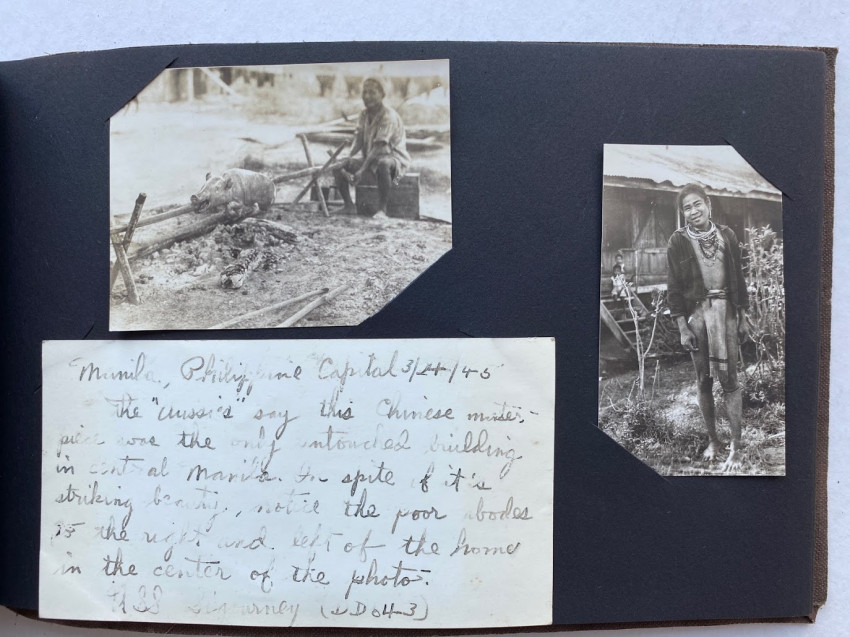 Manila, Philippine Capital 3/24/45
The "Aussies" say this Chinese master-
piece was the only untouched building
in central Manila. In spite of it's
striking beauty, notice the poor abodes
to the right and left of the home
in the center of the photo.
USS Sigourney (DD643)